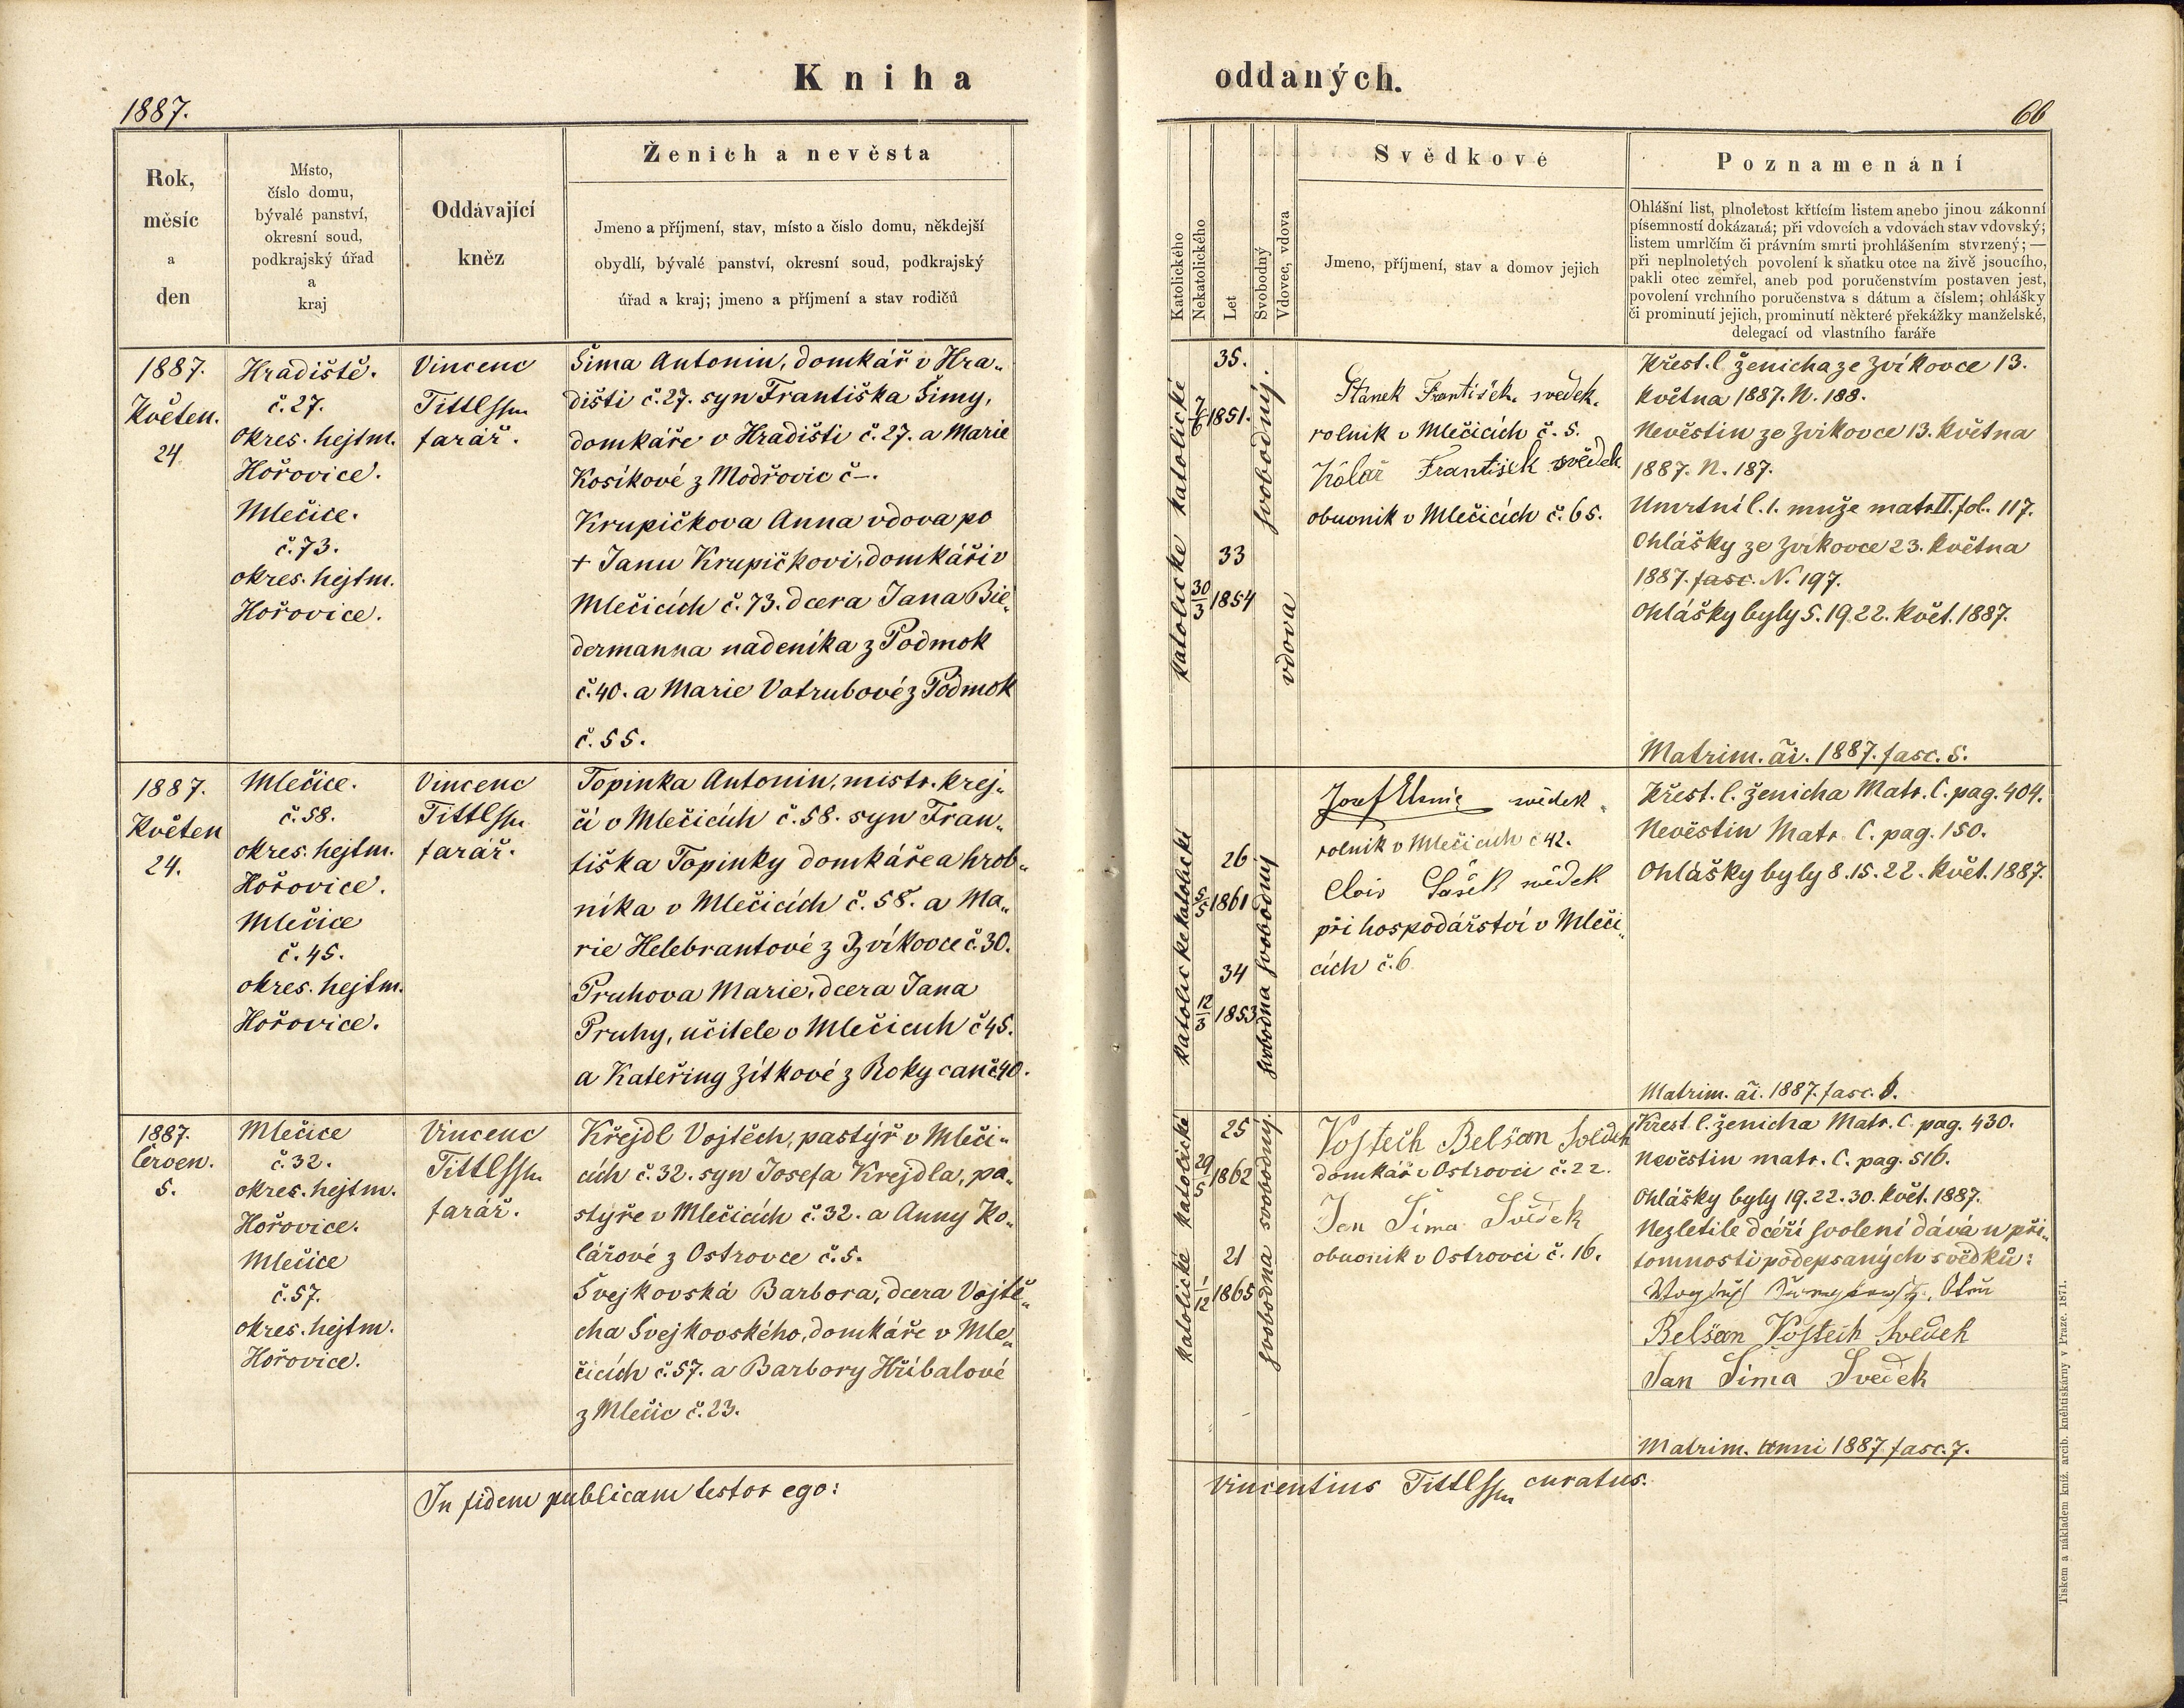 Kniha
oddaných.
1887.
66
Rok,
měsíc
a
den
Místo,
číslo domu,
bývalé panství,
okresní soud,
podkrajský úřad
a
kraj
Oddávající
kněz
Ženich a nevěsta
Jmeno a příjmení, stav, místo a číslo domu, někdejší
obydlí, bývalé panství, okresní soud, podkrajský
úřad a kraj; jmeno a příjmení a stav rodičů
Katolického
Nekatolického
Let
Svobodný
Vdovec, vdova
Svědkové
Jmeno, příjmení, stav a domov jejich
Poznamenání
Ohlášní list, plnoletost křtícím listem anebo jinou zákonní
písemností dokázaná; při vdovcích a vdovách stav vdovský;
listem umrlčím či právním smrti prohlášením stvrzený; —
při neplnoletých povolení k sňatku otce na živě jsoucího,
pakli otec zemřel, aneb pod poručenstvím postaven jest,
povolení vrchního poručenstva s dátum a číslem; ohlášky
či prominutí jejich, prominutí některé překážky manželské,
delegací od vlastního faráře
1887.
Květen.
24
Hradiště.
č. 27.
okres. hejtm.
Hořovice.
Mlečice.
č. 73.
okres. hejtm.
Hořovice.
Vincenc
Tittl
farář.
Šima Antonin, domkář v Hra„
dišti č. 27. syn Františka Šimy,
domkáře v Hradišti č. 27. a Marie
Kosíkové z Modřovic č –.
Krupičkova Anna vdova po
+ Janu Krupičkovi, domkáři v
Mlečicích č. 73. dcera Jana Bie„
dermanna nadeníka z Podmok
č. 40. a Marie Votrubové z Podmok
č. 55.
katolické
katolické
35.
7/6 1851.
33
30/3 1854
svobodný.
vdova
Stánek František. svedek.
rolník v Mlečicích č. 5.
Kolař František svědek
obuvník v Mlečicích č. 65.
Křest. l. ženicha ze Zvíkovce 13.
května 1887. N. 188.
Nevěstin ze Zvikovce 13. května
1887. N. 187.
Umrtní l. 1. muže matr. II. fol. 117.
Ohlášky ze Zvíkovce 23. května
1887. fasc. N. 197.
Ohlášky byly 5. 19. 22. květ. 1887.
Matrim. ãi. 1887. fasc. 5.
1887.
Květen
24.
Mlečice.
č. 58.
okres. hejtm.
Hořovice.
Mlečice
č. 45.
okres. hejtm.
Hořovice.
Vincenc
Tittl
farář.
Topinka Antonin, mistr. krej„
čí v Mlečicích č. 58. syn Fran„
tiška Topinky domkáře a hrob„
níka v Mlečicích č. 58. a Ma„
rie Helebrantové z Zvíkovce č. 30.
Pruhova Marie, dcera Jana
Pruhy, učitele v Mlečicích č 45.
a Kateřiny Zítkové z Rokycan č 40.
katolické
katolické
26
5/5 1861
34
12/3 1853
svobodný
svobodna
Josef
rolník v Mlečicích č 42.
při hospodářství v Mleči„
cích č. 6
Křest. l. ženicha Matr. C. pag. 404.
Nevěstin Matr. C. pag. 150.
Ohlášky byly 8. 15. 22. květ. 1887.
Matrim. ãi. 1887. fasc. 6.
1887.
Červen.
5.
Mlečice
č. 32.
okres. hejtm.
Hořovice.
Mlečice
č. 57.
okres. hejtm.
Hořovice.
Vincenc
Tittl
farář.
Křejdl Vojtěch, pastýř v Mleči„
cích č. 32. syn Josefa Krejdla, pa„
stýře v Mlečicích č. 32. a Anny Ko„
lářové z Ostrovce č. 5.
Švejkovská Barbora, dcera Vojtě„
cha Švejkovského, domkáře v Mle„
čicích č. 57. a Barbory Hříbalové
z Mlečic č. 23.
katolické
katolické
25
29/5 1862
21
1/12 1865
svobodný.
svobodna
Vojtěch Belšan
domkář v Ostrovci č. 22.
Jan Šima Svědek
obuvník v Ostrovci č. 16.
Křest. l. ženicha Matr. C. pag. 430.
Nevěstin matr. C. pag. 516.
Ohlášky byly 19. 22. 30. květ. 1887.
Nezletile dceři svolení dává u při„
tomnosti podepsaných svědků:
Belšan Vojtěch Svedek
Jan Šima Svedek
Matrim. anni 1887 fasc. 7.
In fidem publicam testor ego:
Vincentius Tittl curatus.
Tiskem a nákladem kníž. arcib. knihtiskárny v Praze. 1871.